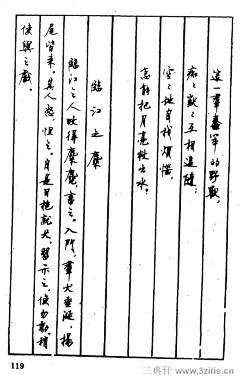 這一群蠢笨的野獸，
痴痴獃獃互相追隨，
空空地自找煩惱，
怎能把月亮救出水。
臨江之麋
臨江之人畋得麋麑，畜之。入門，群犬垂涎，揚
尾皆來。其人怒，怛之。自是日抱就犬，習示之，使勿動，稍
使與之戲。
119
三典轩 www.3zitie.cn